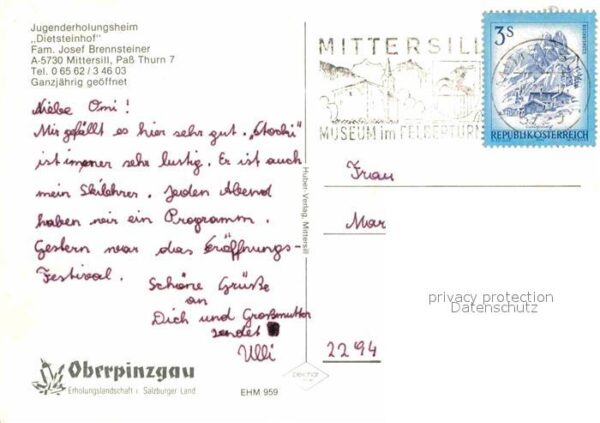 Jugenderholungsheim
„Dietsteinhof"
Fam. Josef Brennsteiner
A-5730 Mittersill, Paß Thurn 7
Tel. 0 65 62 / 3 46 03
Ganzjährig geöffnet
Liebe Omi!
Mir gefällt es hier sehr gut. „Stocki"
ist immer sehr lustig. Er ist auch
mein Skilehrer. Jeden Abend
haben wir ein Programm.
Gestern war das Eröffnungs-
Festival.
Schöne Grüße
an
Dich und Großmutter
sendet
Ulli
Oberpinzgau
Erholungslandschaft i. Salzburger Land
EHM 959
Huber-Verlag, Mittersill
MITTERSILL
MUSEUM im FELBERTURM
3S
REPUBLIK ÖSTERREICH
Frau
Mar
privacy protection
Datenschutz
2294